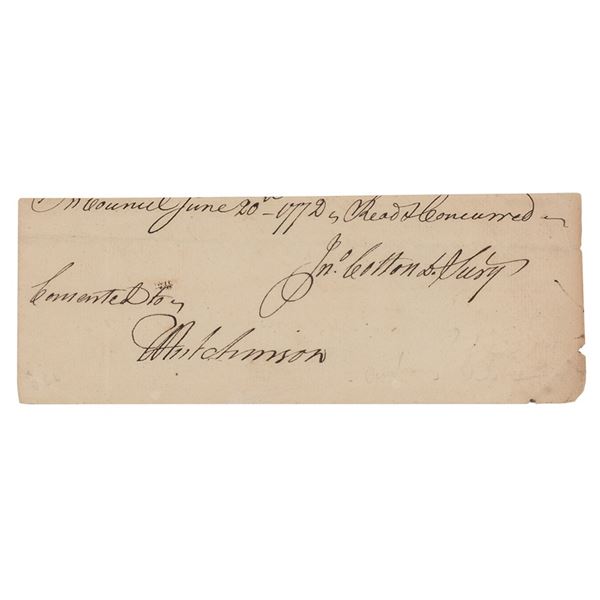 In Council June 20th 1772 Read & Concurred
Jno Cotton D. Secry
Consented to
T Hutchinson